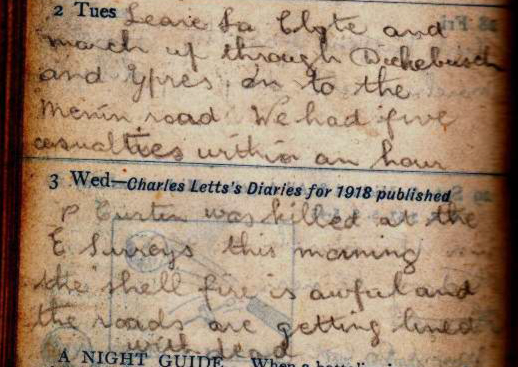 2 Tues Leave La Clyte and
march up through Dickebusch
and Ypres on to the
Menin road We had five
casualties within an hour
3 Wed—Charles Letts's Diaries for 1918 published
P Curtin was killed at the
E Surreys this morning
the shell fire is awful and
the roads are getting lined
with dead
A NIGHT GUIDE When a